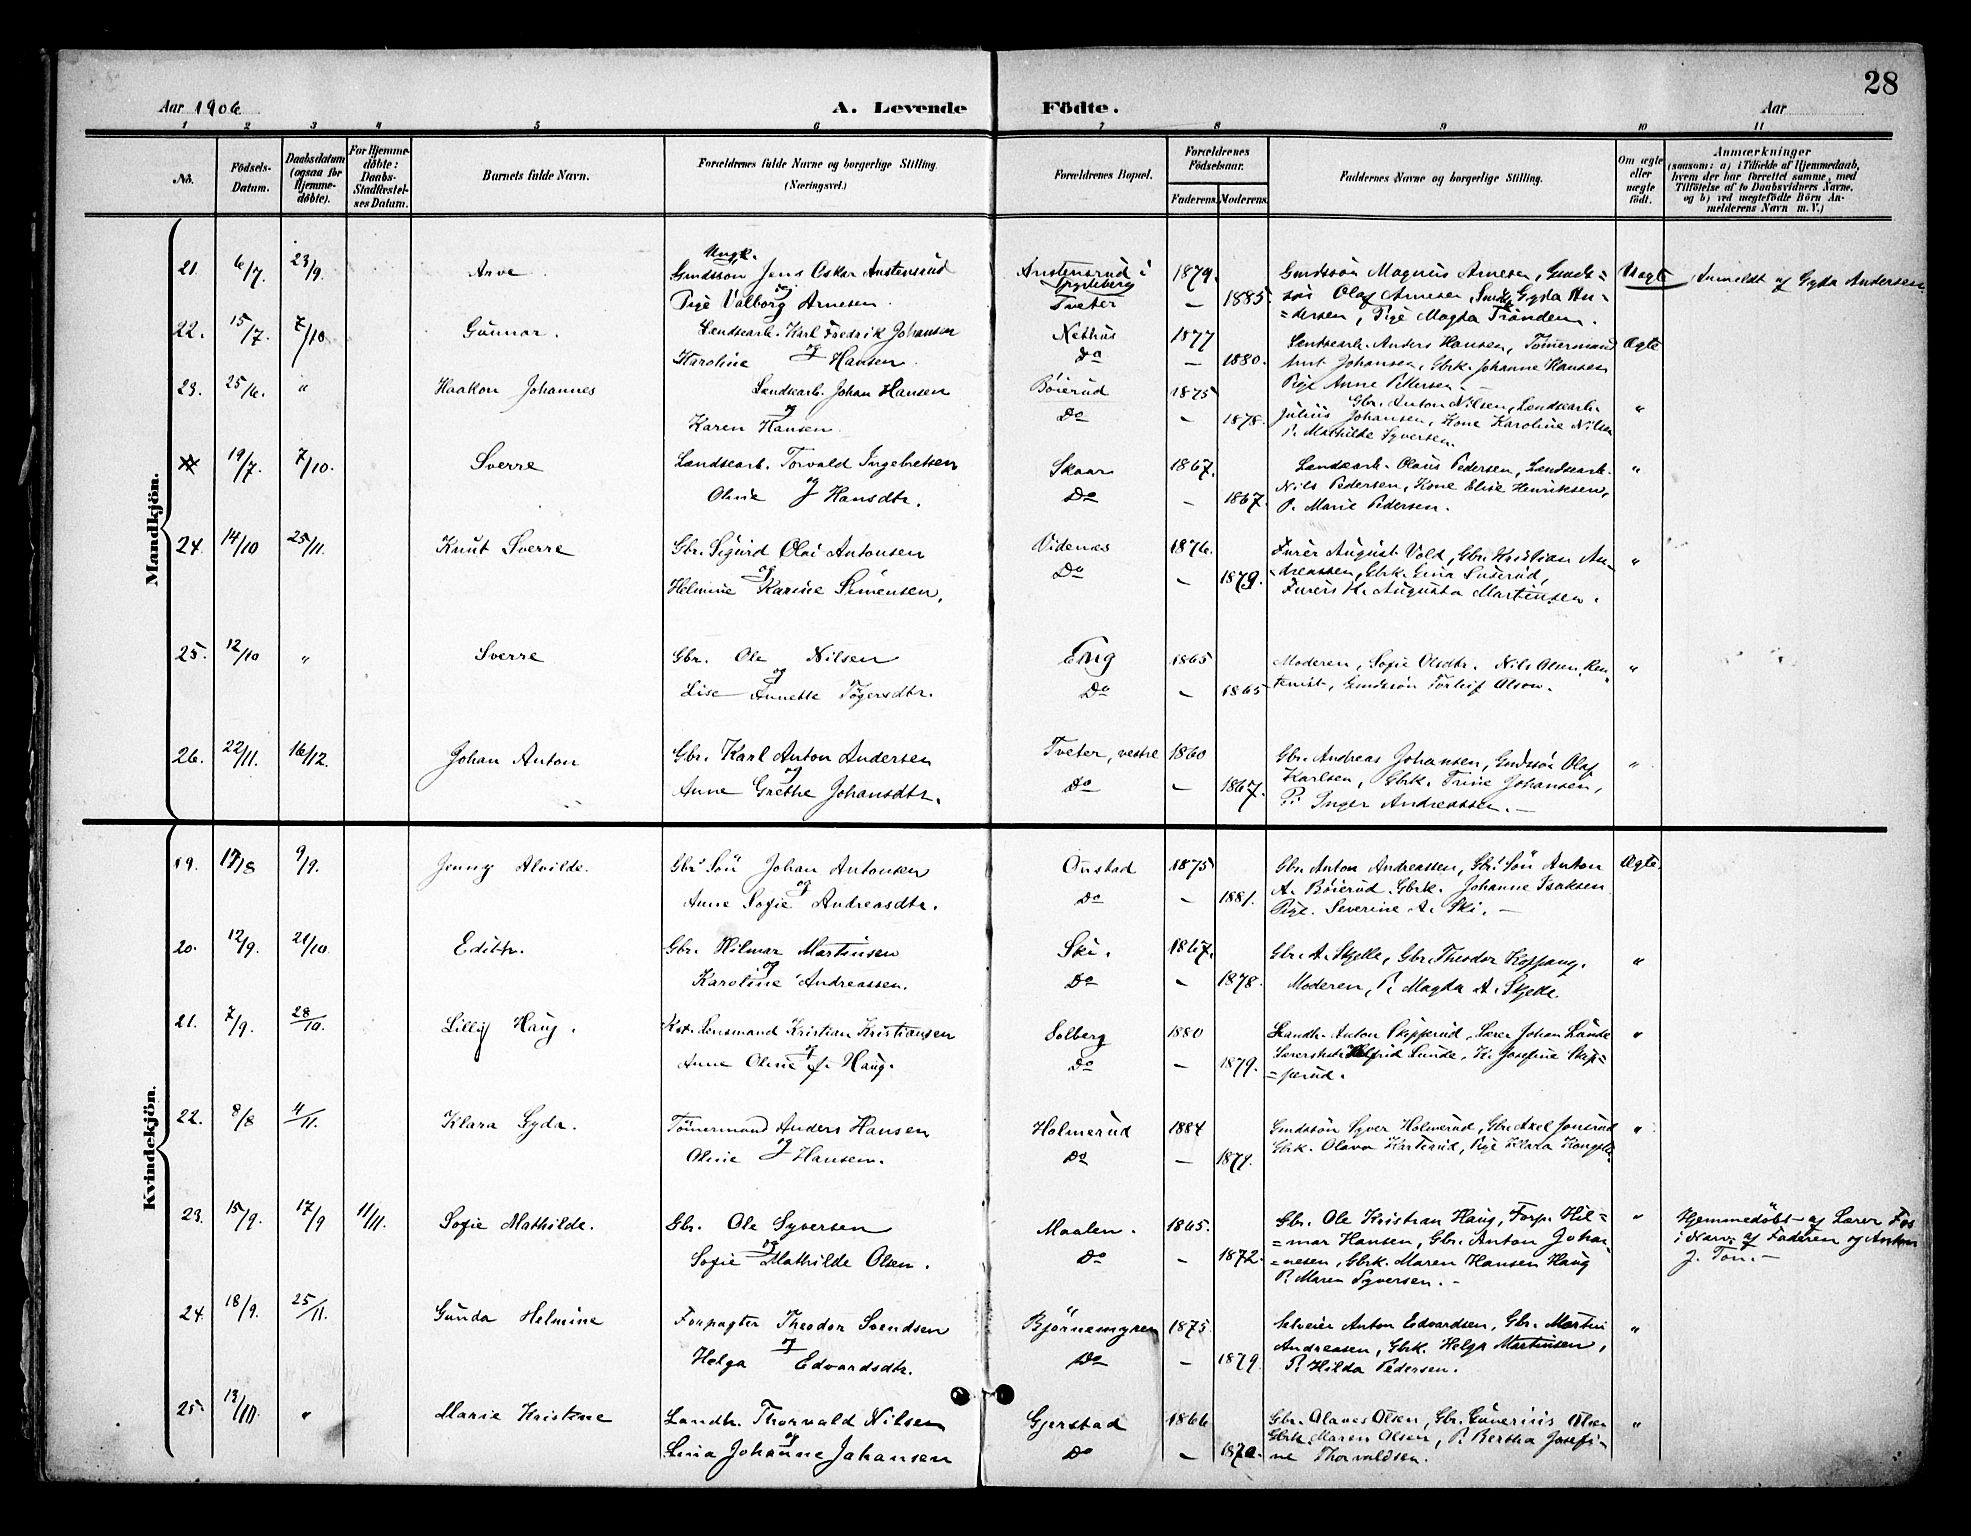 28
Aar 1906
A. Levende Födte.
Aar
1 2 3 4 5 6 7 8 9 10 11
No.
Födsels-Datum.
Daabsdatum (ogsaa for Hjemmedøbte).
For Hjemmedøbte: Daabs-Stadfæstelses Datum.
Barnets fulde Navn.
Forældrenes fulde Navne og borgerlige Stilling. (Næringsvei.)
Forældrenes Bopæl.
Forældrenes Födselsaar.
Faderens. Moderens.
Faddernes Navne og borgerlige Stilling.
Om ægte eller uægte födt.
Anmærkninger
(saasom: a) i Tilfælde af Hjemmedaab, hvem der har forrettet samme, med Tilföielse af to Daabsvidners Navne, og b) ved uægtefödte Börn Anmelderens Navn m. V.)
Mandkjön.
21. 6/7 23/9 Arve
Ungk.
Gmdssøn Jens Oskar Austensrud
og
Pige Valborg Arnesen.
Austensrud i
Trygstad
Tveter
1879. — 1885
Gmdssøn Magnus Arnesen, Gmds=
søn Olaf Arnesen, Gyda An=
=dersen, Pige Magda Tranden.
Uægte
Anmeldt af Gyda Andersen.
22. 15/7. 7/10 Gunnar.
Landsearb. Karl Fredrik Johansen
og
Karoline Hansen
Do
1877 — 1880.
Anders Hansen, Tømermand
Johansen, Gbrk. Johanne Hansen
Pige Anne Pettersen. —
Ægte
23. 25/6. " Haakon Johannes
Landsearb. Johan Hansen
og
Karen Hansen
Bøierud
Do
1875 — 1878.
Gbr. Anton Nilsen, Landsearb.
Julius Johansen, Kone Karoline Nilsen
P. Mathilde Syversen.
"
19/7 7/10. Sverre
Landsearb. Torvald Ingebretsen
og
Oline Hansdtr.
Skaar
Do
1867. — 1867.
Landsearb. Olaus Pedersen, Landsearb.
Nils Pedersen, Kone Elise Henriksen,
P. Marie Pedersen.
"
24. 14/10 25/11. Knut Sverre
Gbr. Sigurd Olai Antonsen
og
Helmine Karine Simensen,
Videnes
Do
1876. — 1879.
Furér August Vold, Gbr. Kristian An=
=dreassen, Gbrk. Gina Suserud,
Furérs H. Augusta Martinsen.
"
25. 12/10 " Sverre
Gbr. Ole Nilsen
og
Lise Annette Tøgersdtr.
Eng
Do
1865 — 1865
Moderen, Sofie Olsdtr. Nils Olsen,
Gmdssøn Torleif Olson.
"
26. 22/11. 16/12. Johan Anton
Gbr. Karl Anton Andersen
og
Anne Grethe Johansdtr.
Tveter, vestre
Do
1860 — 1867.
Gbr. Andreas Johansen, Gmdssøn Olaf
Karlsen, Gbrk. Trine Johansen,
P. Inger Andreassen. —
"
Kvindekjön.
19. 17/8 9/9. Jenny Alvilde.
Gbr. Søn Johan Antonsen
og
Anne Sofie Andreasdtr.
Onstad
Do
1875 — 1881.
Gbr. Anton Andreassen, Gbr. Søn Anton
A. Bøierud. Gbrk. Johanne Isaksen
Pige. Severine A. Ski. —
Ægte.
20. 12/9. 21/10 Edith.
Gbr. Hilmar Martinsen
og
Karoline Andreassen.
Ski.
Do
1867. — 1878.
Gbr. A. Skjelle, Gbr. Theodor Koppang.
Moderen, P. Magda A. Skjelle.
"
21. 7/9. 28/10. Lilly Haug.
Kst. Lensmand Kristian Kristiansen
og
Anne Oline J. Haug.
Solberg
Do
1880 — 1879.
Landh. Anton Skipperud, Lærer Johan Lunde
Lunde, K. Josefine Skip=
=perud.
"
22. 8/8 4/11. Klara Gyda.
Tømermand Anders Hansen
og
Oline Hansen.
Holmerud
Do
1884 — 1871.
Gmdssøn Syver Holmerud, Gbr. Axel Jonsrud
Gbrk. Olava Karterud, Pige Klara
"
23. 15/9. 17/9 11/11. Sofie Mathilde.
Gbr. Ole Syversen
og
Sofie Mathilde Olsen.
Maalen.
Do
1865. — 1872.
Gbr. Ole Kristian Haug, Forp. Hil=
=mar Hansen, Gbr. Anton Johan=
=nesen, Gbrk. Maren Hansen Haug
P. Maren Syversen. —
"
Hjemmedøbt af Lærer Fos
i Nærv. af Faderen og Anton
J. Ton. —
24. 18/9. 25/11. Gunda Helmine
Forpagter Theodor Svendsen
og
Helga Edvardsdtr.
Bjørnemyren
Do
1875. — 1879.
Selveier Anton Edvardsen, Gbr. Martin
Andreasen, Gbrk. Helga Martinsen,
P. Hilda Pedersen.
"
25 13/10. " Marie Kristine
Landh. Thorvald Nilsen
og
Lina Johanne Johansen
Gjerstad
Do
1866 — 1870.
Gbr. Olaves Olsen, Gbr. Gunerius Olsen
Gbrk. Maren Olsen, P. Bertha Josefi=
ne Thorvaldsen.
"